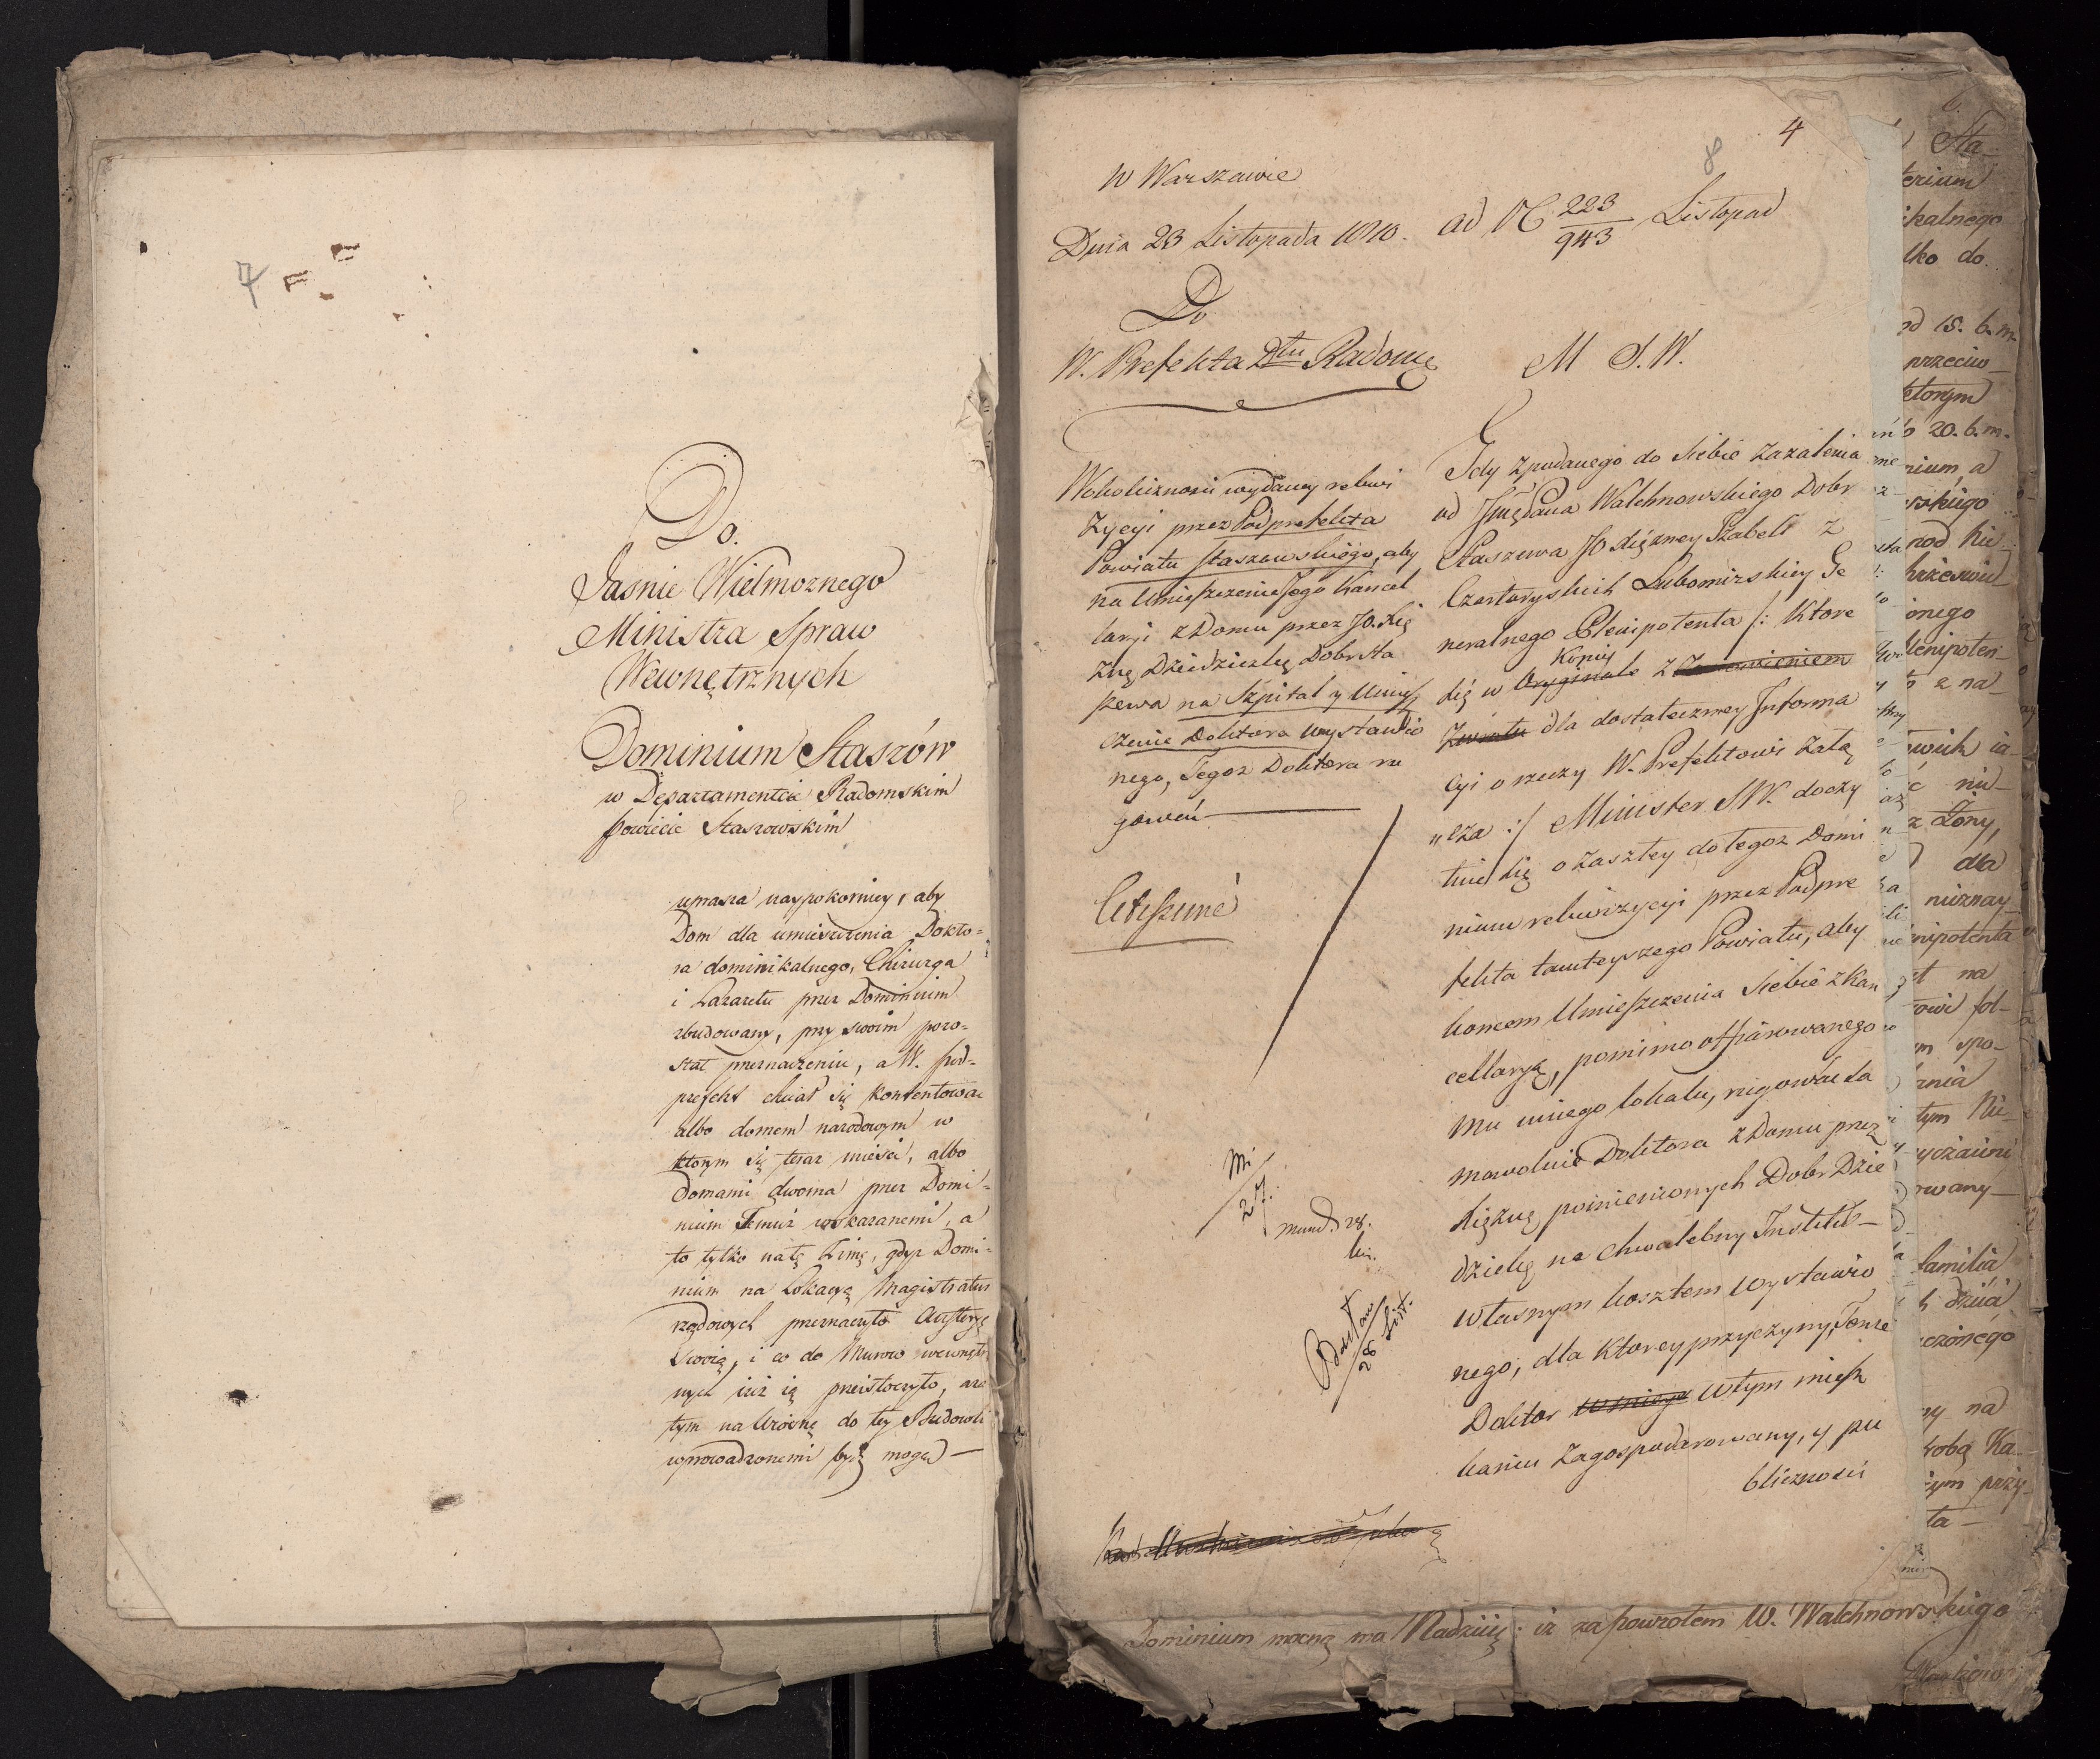 7
Do.
Jasnie Wielmoznego
Ministra Spraw
Wewnętrznych
Dominium Staszów
w Departamencie Radomskim
Powiecie Staszowskim
uprasza naypokorniey, aby
Dom dla umieszczenia Dokto=
ra dominikalnego, Chirurga
i Lazaretu przez Dominium
zbudowany, przy swoim pozo=
stał przeznaczeniu, a W. Pod=
prefekt chciał się kontentować
albo domem narodowym w
ktorym się teraz mieści, albo
Domami dwoma przez Domi=
nium Jemuż wskazanemi, a
to tylko na tę Zimę, gdyż Domi=
nium na Lokacyą Magistratur
rządowych przeznaczyło Austeryę
swoią, i co do Murow wewnętrz
nych już ią przeistoczyło, aza
tym na Wiosnę do tey Budowli
wprowadzonemi być mogą —
4
8
W Warszawie
Dnia 23 Listopada 1810. ad N 223/943 Listopad
Do
W. Prefekta Dtu Radoms
M S. W.
Wokoliczności wydaney rekwi
zycyi przez Podprefekta
Powiatu Staszowskiego, aby
na Umieszczenie Jego Kancel
laryi z Domu przez JO. Xię
żnę Dziedziczkę Dobr Sta
szewa na Szpital y Umiesz
czenie Doktora wystawio
nego, Tegoż Doktora ru
gowáć
Gdy z podanego do Siebie Zażalenia
od Jmć Pana Walchnowskiego Dobr
Staszewa JO Xiężney Izabeli z
Czartoryskich Lubomirskiey Ge
neralnego Plenipotenta /: Ktore
Kopij
się w Oryginale z
Zwrotu dla dostateczney Informa
cyi o rzeczy W. Prefektowi Załą
"cza :/ Minister SW. doczy
tuie się o zaszłey do tegoz Domi
nium rekwizycyi przez Podpre
fekta tamteyszego Powiatu, aby
koncem Umieszczenia Siebie z Kan
cellaryą, pomimo offiarowanego
Mu innego lokalu, rugować Sa
mowolnie Doktora z Domu przez
Xiężnę pomienionych Dobr Dzie
dziczkę na chwalebny Institut
własnym kosztem wystawio
nego, dla ktorey przyczyny, Tenże
Doktor w tym miesz
kaniu Zagospodarowany, y pu
bliczności
27.
mund. 28.
28 List.
Dominium mocną ma Nadzieię: iż za powrotem W. Walchnowskiego
Sta-
terium
ikalnego
lko do
od 15. b. m.
przeciw
ktorym
20. b. m.
nium, a
wskiego
pod Ki
onego
lenipoten
z na-
nie-
z Żony,
dla
nieznay
nipotenta
na
spo-
tym Nie-
familia
czonego
ny na
sobą Ka-
tym przy-
ta —